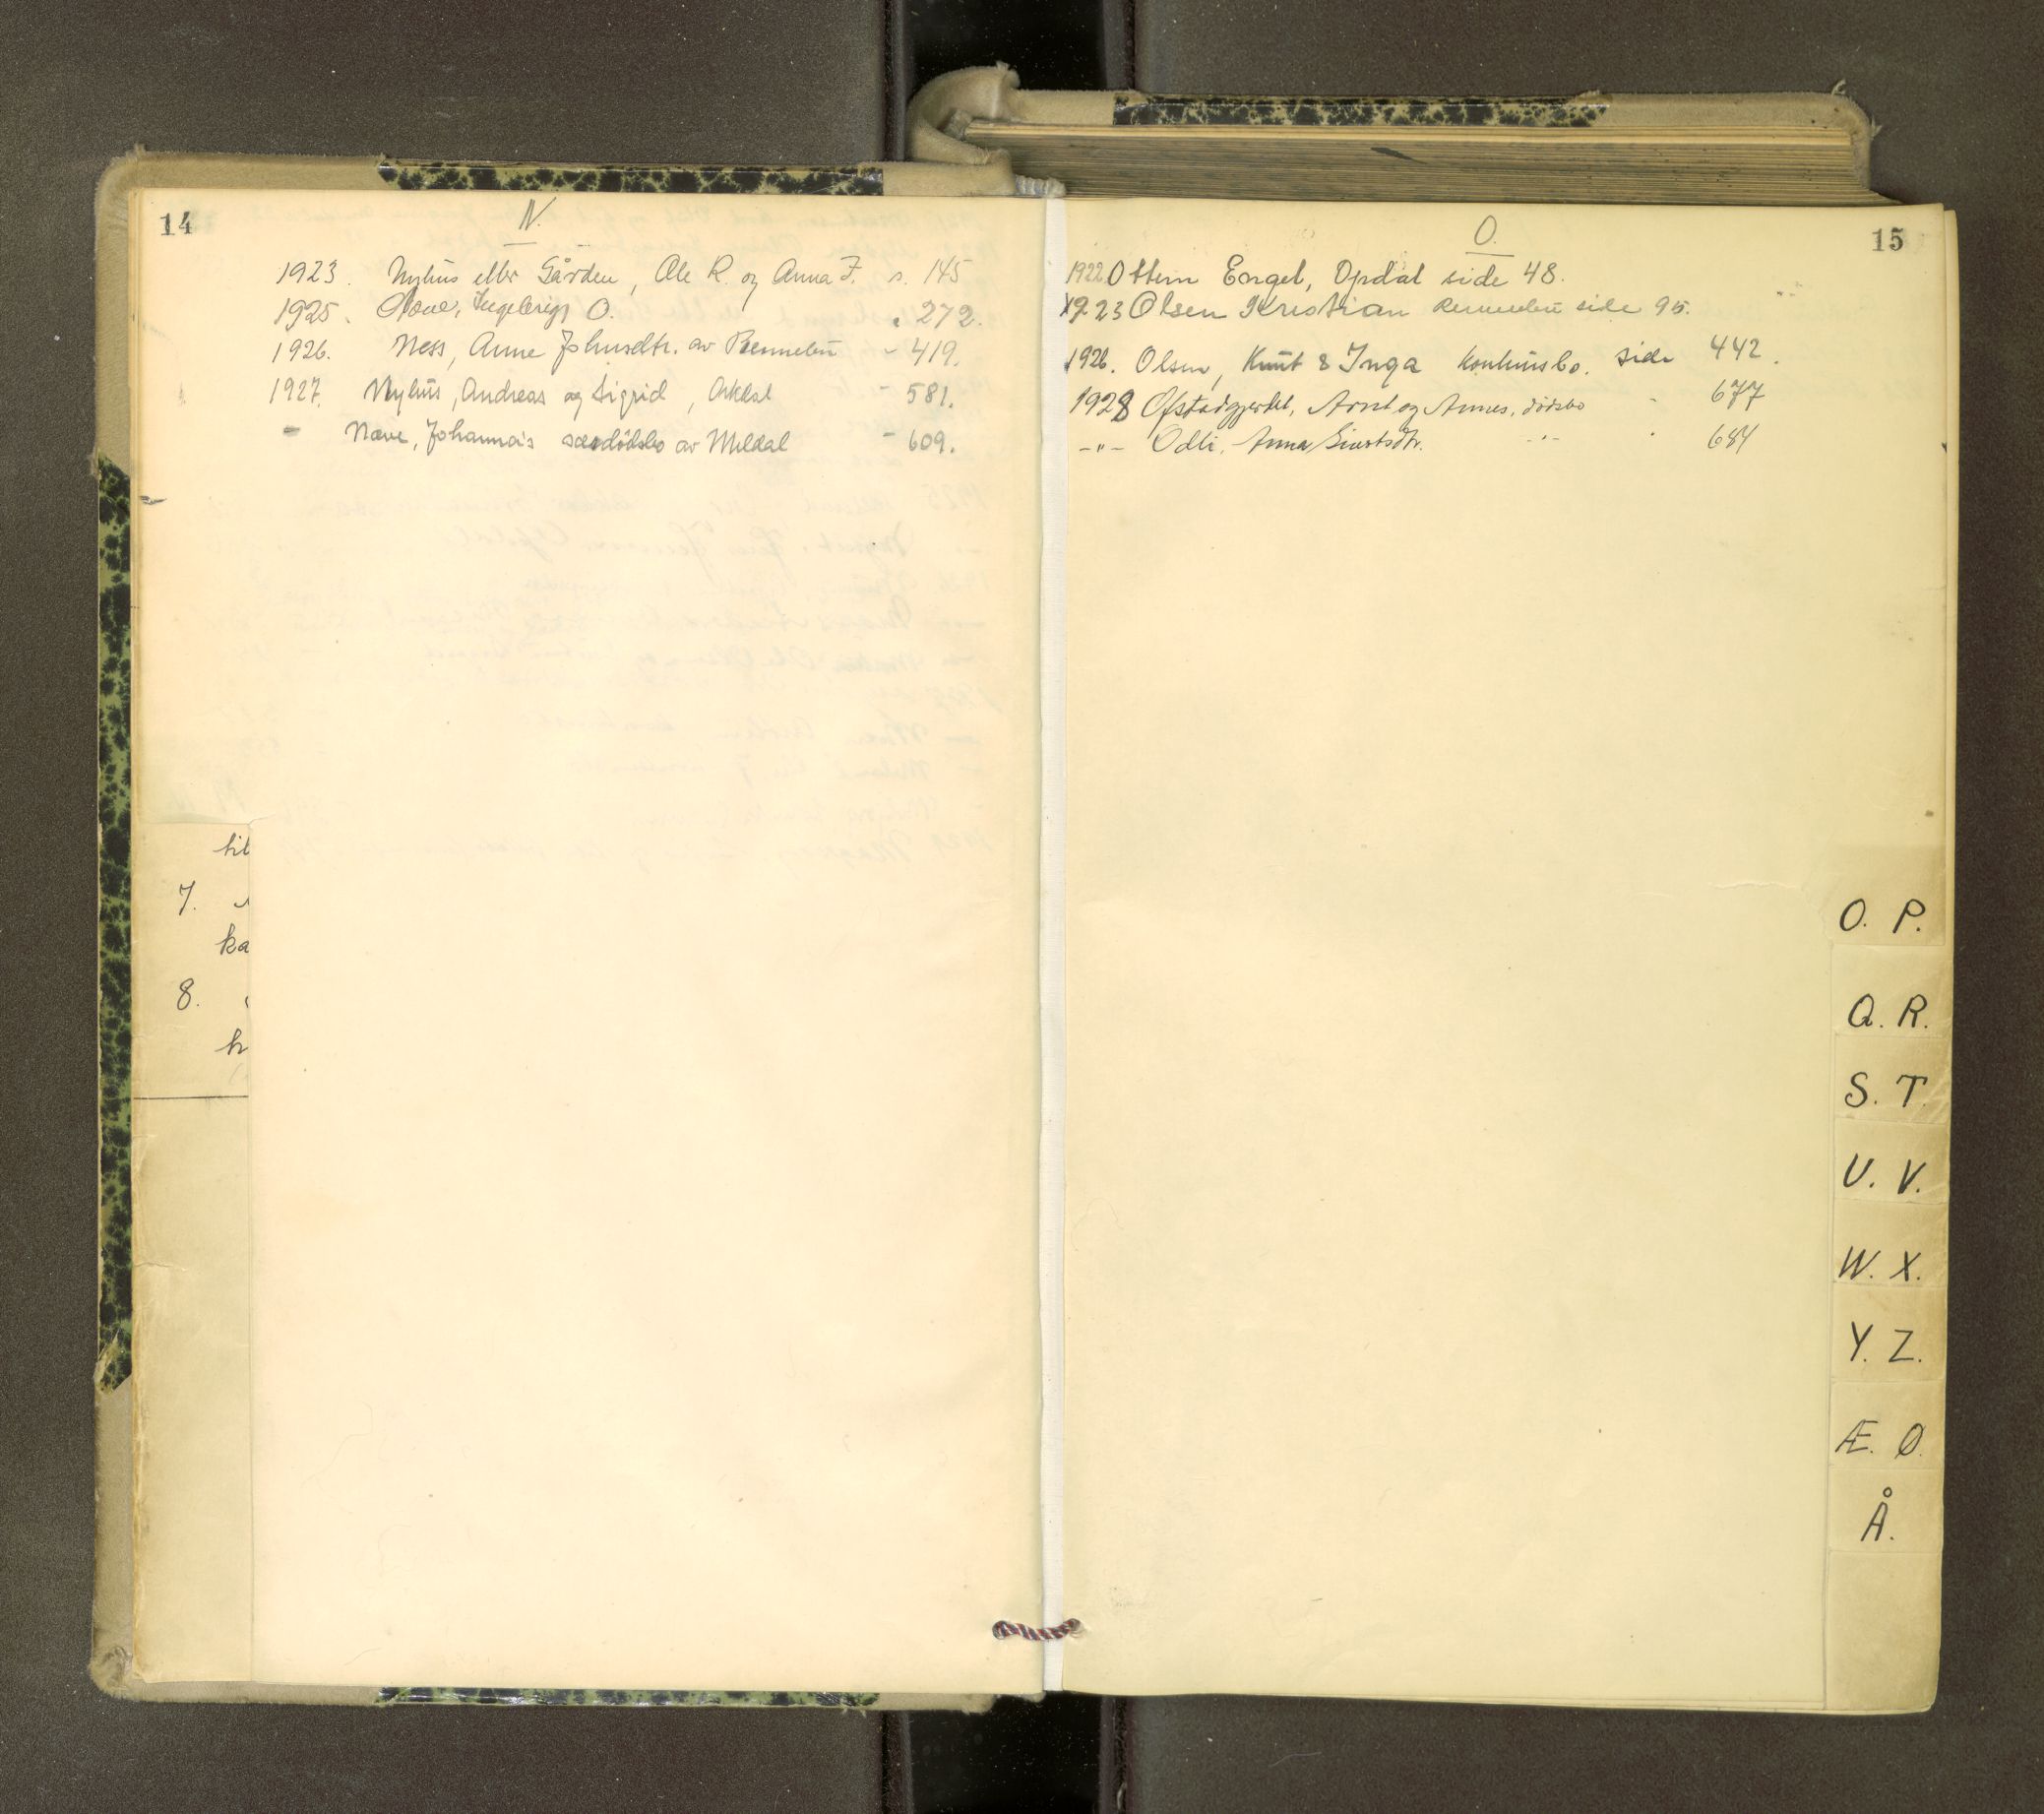 14
N.
1923. Nyhus eller Gården, Ole R. og Anna F. s. 145
1925. Næve, Ingebrigt O. " 272.
1926. Ness, Anne Johnsdtr. av Rennebu - 419.
1927. Nyhus, Andreas og Sigrid, Orkdal - 581.
- Næve, Johanna's særdødsbo av Meldal - 609.
til
7.
ka
8.
h
O.
15
1922 Ottem Engel, Opdal side 48.
1923 Olsen Kristian Rennebu side 95.
1926. Olsen, Knut & Inga konkursbo. side 442.
1928 Ofstadgjerdet, Arnt og Annes, dødsbo - 677
-"- Odli, Anna Sivertsdtr. -"- 684
O. P.
Q. R.
S. T.
U. V.
W. X.
Y. Z.
Æ. Ø.
Å.